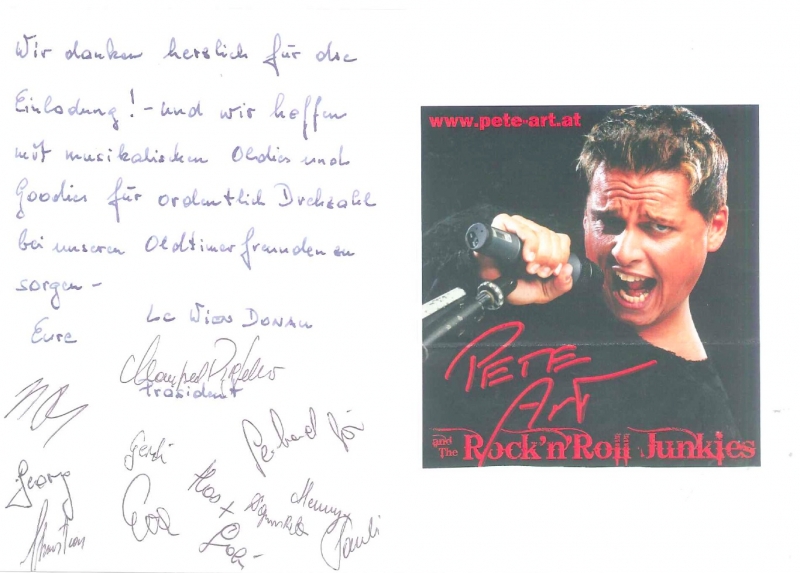 Wir danken herzlich für die
Einladung! - und wir hoffen
mit musikalischen Oldies und
Goodies für ordentlich Drehzahl
bei unseren Oldtimerfreunden zu
sorgen -
Eure
LC Wien Donau
Präsident
Gerhard
Georg
Eva
Christian
www.pete-art.at
PETE
ART
and The Rock'n'Roll Junkies